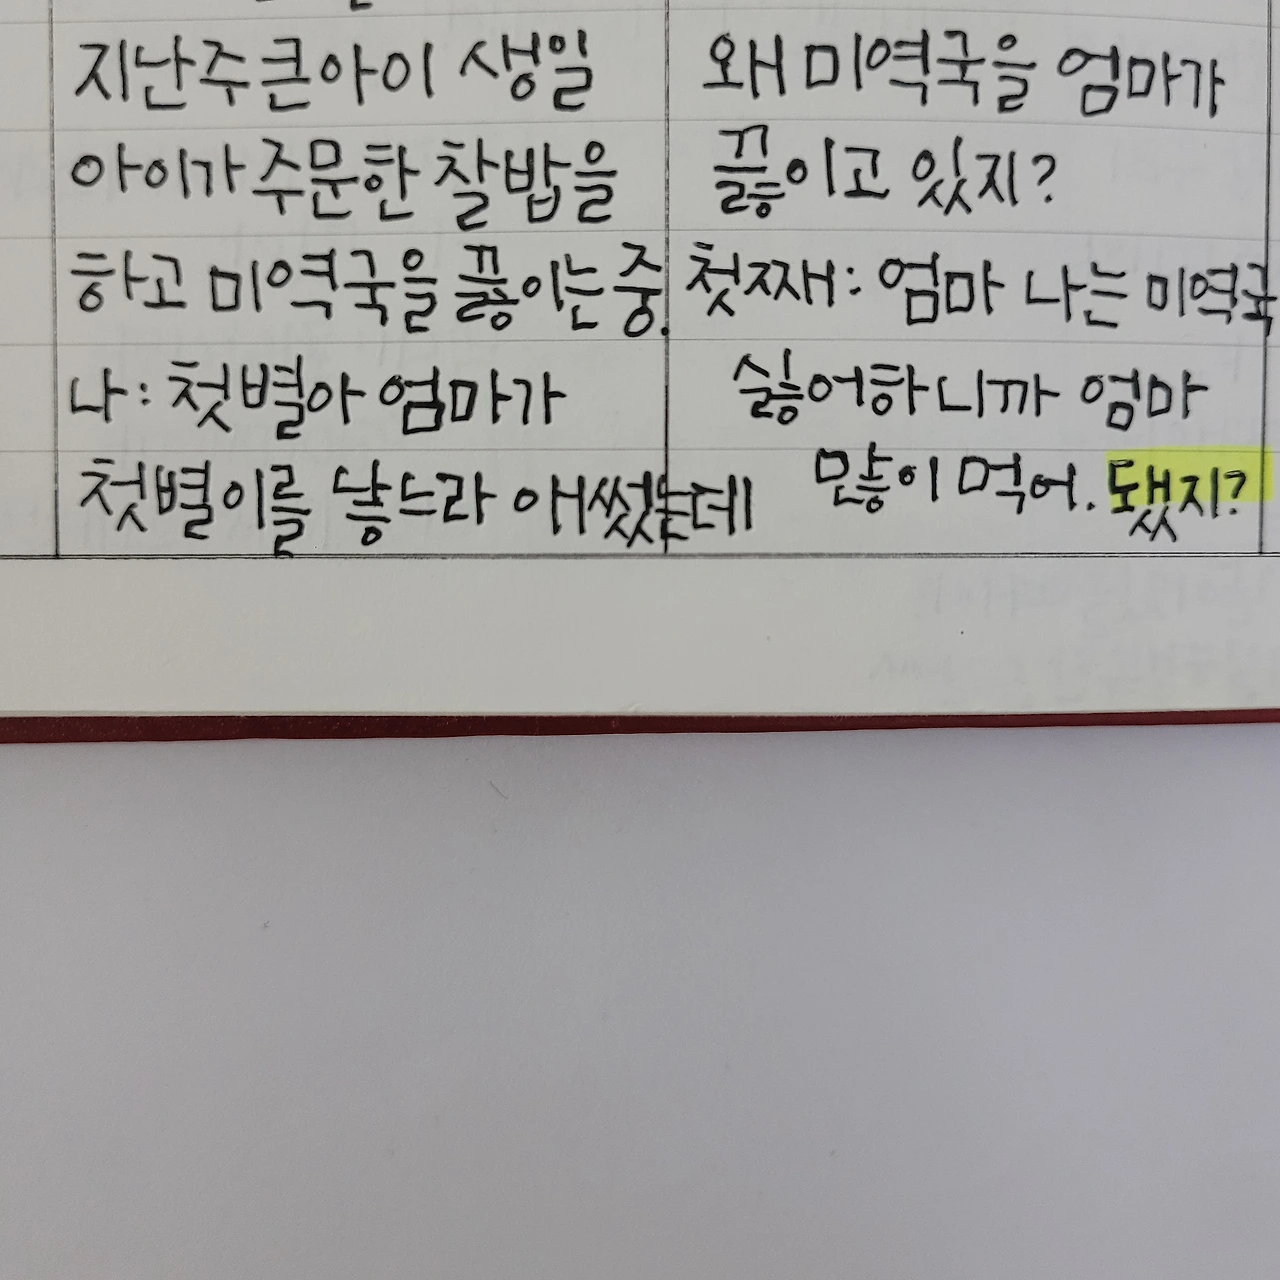 지난주 큰아이 생일
아이가 주문한 찰밥을
하고 미역국을 끓이는 중.
나: 첫별아 엄마가
첫별이를 낳느라 애썼는데
왜 미역국을 엄마가
끓이고 있지?
첫째: 엄마 나는 미역국
싫어하니까 엄마
많이 먹어. 됐지?